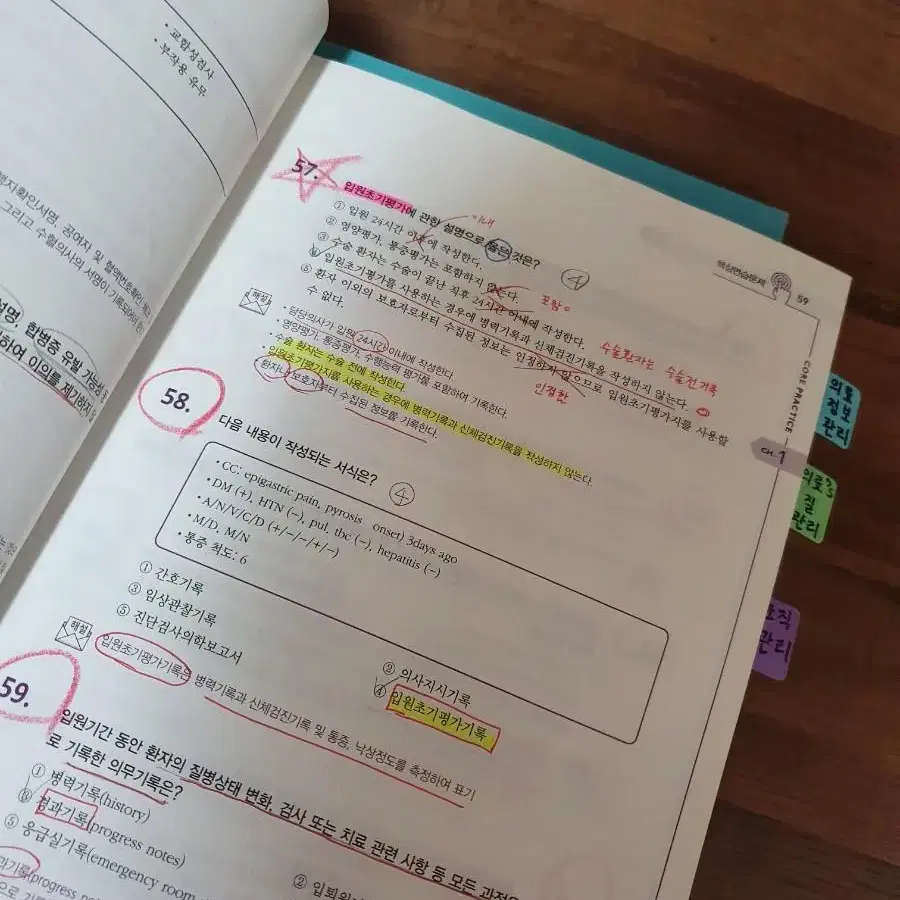 • 교합성검사
• 부작용 유무
행자확인서명, 공여자 및 혈액번호확인
그리고 수혈의사의 서명이 기록되어야
설명, 합병증 유발 가능성
하여 이의를 제기하지
핵심연습문제 59
CORE PRACTICE
Ch. 1
의료
정보
관리
의료's
질
관리
관리
57.
입원초기평가에 관한 설명으로 옳은 것은? ④
① 입원 24시간 이후에 작성한다.
이내
② 영양평가, 통증평가는 포함하지 않는다.
포함 o
③ 수술 환자는 수술이 끝난 직후 24시간 이내에 작성한다.
수술환자는 수술전 기록
④ 입원초기평가를 사용하는 경우에 병력기록과 신체검진기록을 작성하지 않는다.
⑤ 환자 이외의 보호자로부터 수집된 정보는 인정하지 않으므로 입원초기평가지를 사용할
수 없다.
인정함
해설
• 담당의사가 입원 24시간 이내에 작성한다.
• 영양평가, 통증평가, 수행능력 평가를 포함하여 기록한다.
• 수술 환자는 수술 전에 작성한다.
• 입원초기평가지를 사용하는 경우에 병력기록과 신체검진기록을 작성하지 않는다.
보호자로부터 수집된 정보를 기록한다.
58.
다음 내용이 작성되는 서식은? ④
• CC: epigastric pain, pyrosis onset) 3days ago
• DM (+), HTN (−), pul. tbc (−), hepatitis (−)
• A/N/V/C/D (+/−/−/+/−)
• M/D. M/N
• 통증 척도: 6
① 간호기록
② 의사지시기록
③ 임상관찰기록
④ 입원초기평가기록
⑤ 진단검사의학보고서
해설
입원초기평가기록은 병력기록과 신체검진기록 및 통증, 낙상정도를 측정하여 표기
59.
입원기간 동안 환자의 질병상태 변화, 검사 또는 치료 관련 사항 등 모든 과정을
로 기록한 의무기록은?
① 병력기록(history)
②
③ 경과기록(progress notes)
⑤ 응급실기록(emergency room
과기록(progress